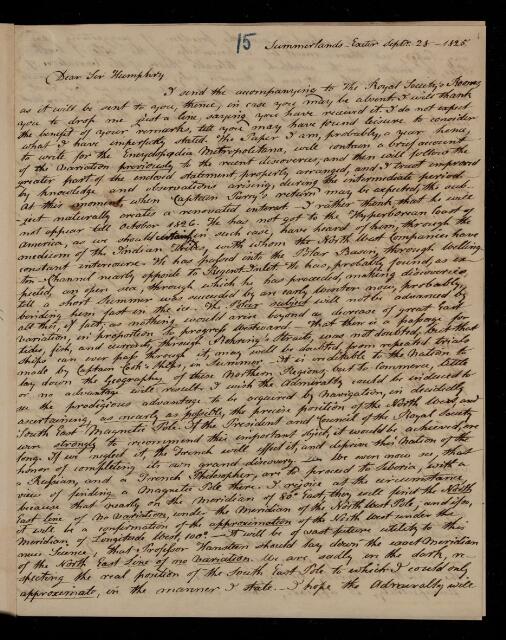 15
Summerlands - Exeter Septr. 28 - 1825
Dear Sir Humphry
I send the accompanying to The Royal Society's Rooms,
as it will be sent to you, thence, in case you may be absent. I will thank
you to drop me just a line, saying you have received it. I do not expect
the benefit of your remarks, till you may have found leisure to consider
what I have imperfectly stated. The Paper I am, probably, a year hence,
to write for the Encyclopædia Metropolitana, will contain a brief account
of the Variation previously to the recent discoveries, and then will follow the
greater part of the enclosed statement properly arranged, and I trust improved
by knowledge and observations arising, during the intermediate period.
At this moment, when Captain Parry's return may be expected, the sub-
-ject naturally creates a renovated interest. I rather think that he will
not appear till October 1826. He has not got to the Hyperborean Coast of
America, as we should in such case, have heard of him, through the
medium of the Indian Tribes, with whom the North West Companies have
constant intercourse. He has passed into the Polar Basin, through Welling-
ton - Channel nearly opposite to Regent-Inlet. He has, probably, found, as ex-
pected, an open sea, through which he has proceeded, making discoveries,
till a short Summer was succeeded by an early Winter now, probably,
binding him fast in the ice. will not be advanced by
all this, if fact, as nothing would arise beyond a decrease of great East
variation, in proportion to progress Westward. - That there is a passage for
tides, fish, and currents, through Behring's Straits, was not doubted, but that
ships can ever pass through it, may well be doubted, from repeated trials
made by Captain Cook's Ships, in Summer. It is creditable to the Nation to
lay down the Geography of these Northern Regions, but to Commerce, little
or no advantage will result. I wish the Admiralty could be induced to
see the prodigious advantage to be acquired by Navigation, in decidedly
ascertaining, as nearly as possible, the precise position of the North West, and
South East Magnetic Pole. If the President and Council of the Royal Society
were strongly to recommend this important object, it would be achieved, ere
long. If we neglect it, the French will effect it, and deprive this Nation of the
honor of completing its own grand discovery. We even now see, that
a Russian, and a French Philosopher, are to proceed to Siberia, with a
view of finding a Magnetic Pole there. I rejoice at the circumstance
because that nearly on the Meridian of 80° East, they will find the North
East line of no Variation, under the Meridian of the North West Pole, and if so,
it will be a confirmation of the approximation of the North West, under the
Meridian of Longitude West, 100°. - It will be of vast future utility to this
Science, that Professor Hansteen should lay down the exact Meridian
of the North East Line of no Variation. We are sadly in the dark, re-
specting the real position of the South East Pole to which I could only
approximate, in the manner I state. - I hope the Admiralty will